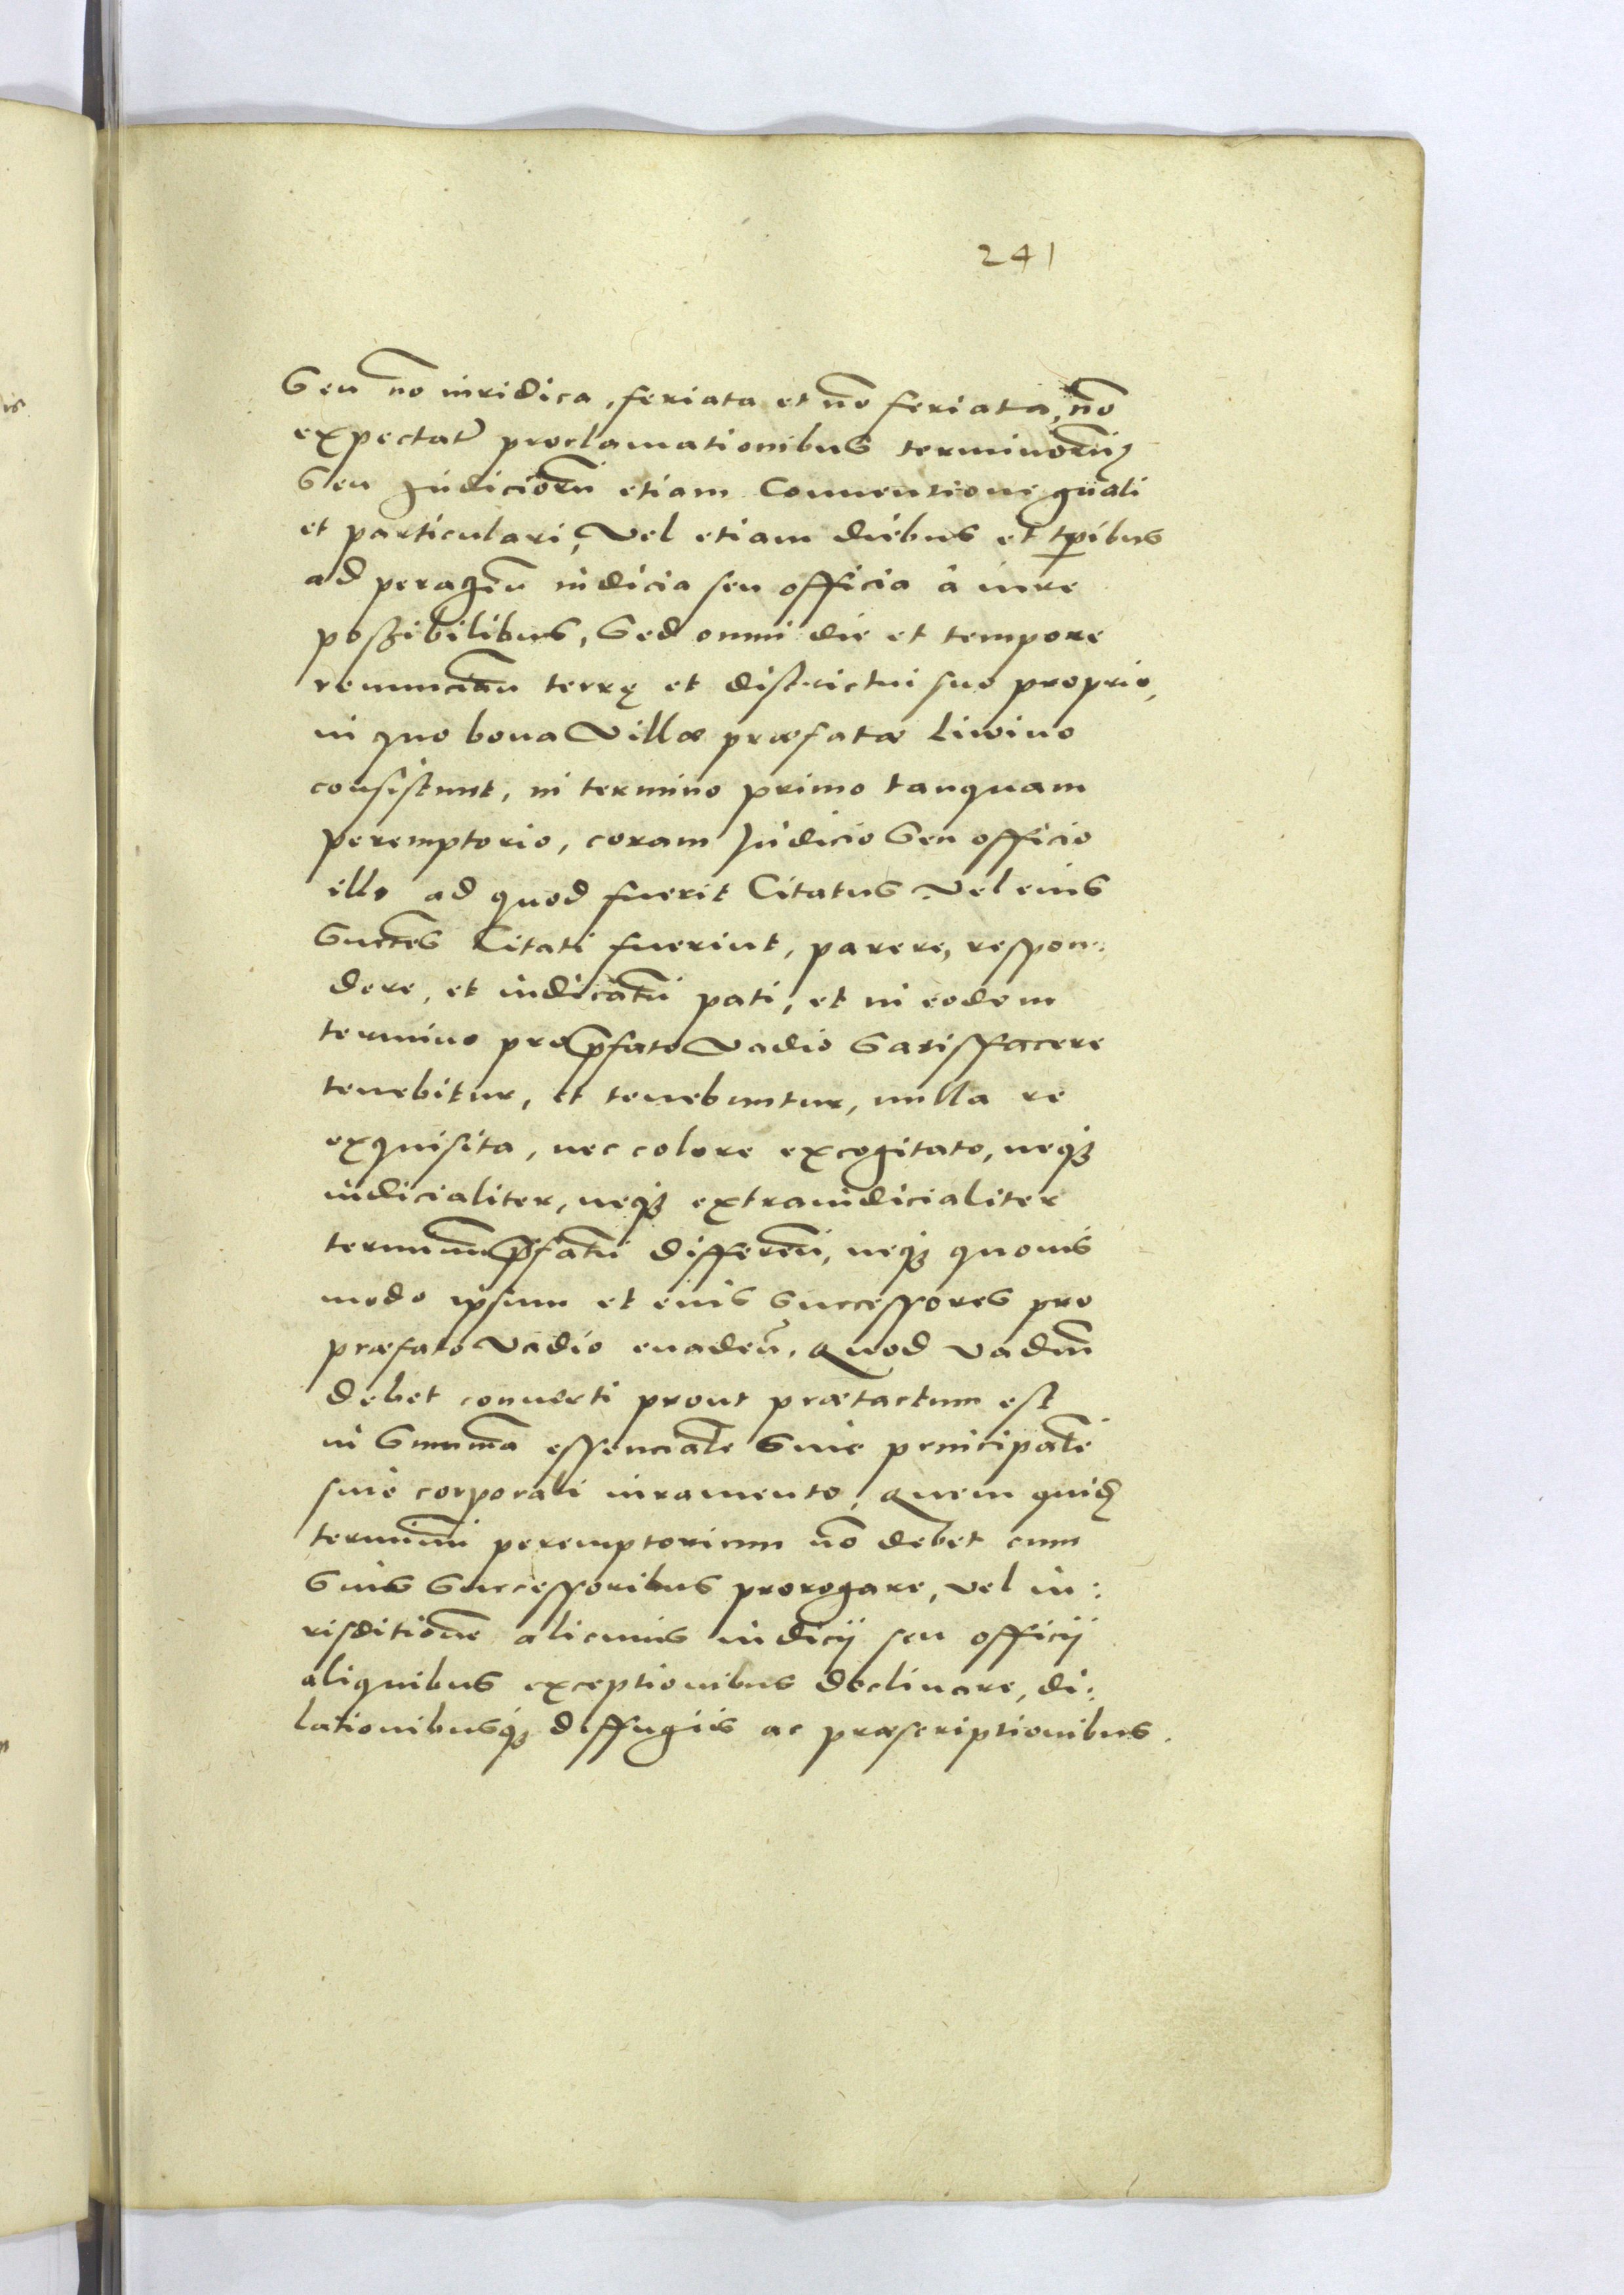 241
Seu nō iuridica, feriata et nō feriata, nō
expectat͛ proclamationibus terminorū
Seu Judiciorū etiam Conuentione gūali
et particulari, Vel etiam diebus et tp̄ibus
ad peragēn iudicia seu officia à iure
poßibilibus, Sed omni die et tempore
renunciān terrę et districtui suo proprio,
in quo bona Villæ præfatæ Liwino
consistunt, in termino primo tanquam
peremptorio, coram Judicio Seu officio
illo ad quod fuerit Citatus Vel eius
Succēs Citati fuerint, parere, respon:
dere, et iudicatū pati, et in eodem
termino pro p̄fato Vadio Satisffacere
tenebitur, et tenebuntur, nulla re
exquisita, nec colore excogitato, neqȝ
iudicialiter, neqȝ extraiudicialiter
terminū p̄fatū differēn, neqȝ quouis
modo ipsum et eius Successores pro
præfato Vadio euadēn. Quod Vadiū
debet conuerti prout prætactum est
in Summā essenciale Siue principale
siue corporali iuramento, Quem quid̄
terminū peremptorium nō debet cum
Suis Successoribus prorogare, vel iu:
risditionē alicuius iudicij seu officij
aliquibus exceptionibus declinare, di:
lationibusqȝ diffugiis ac præscriptionibus.